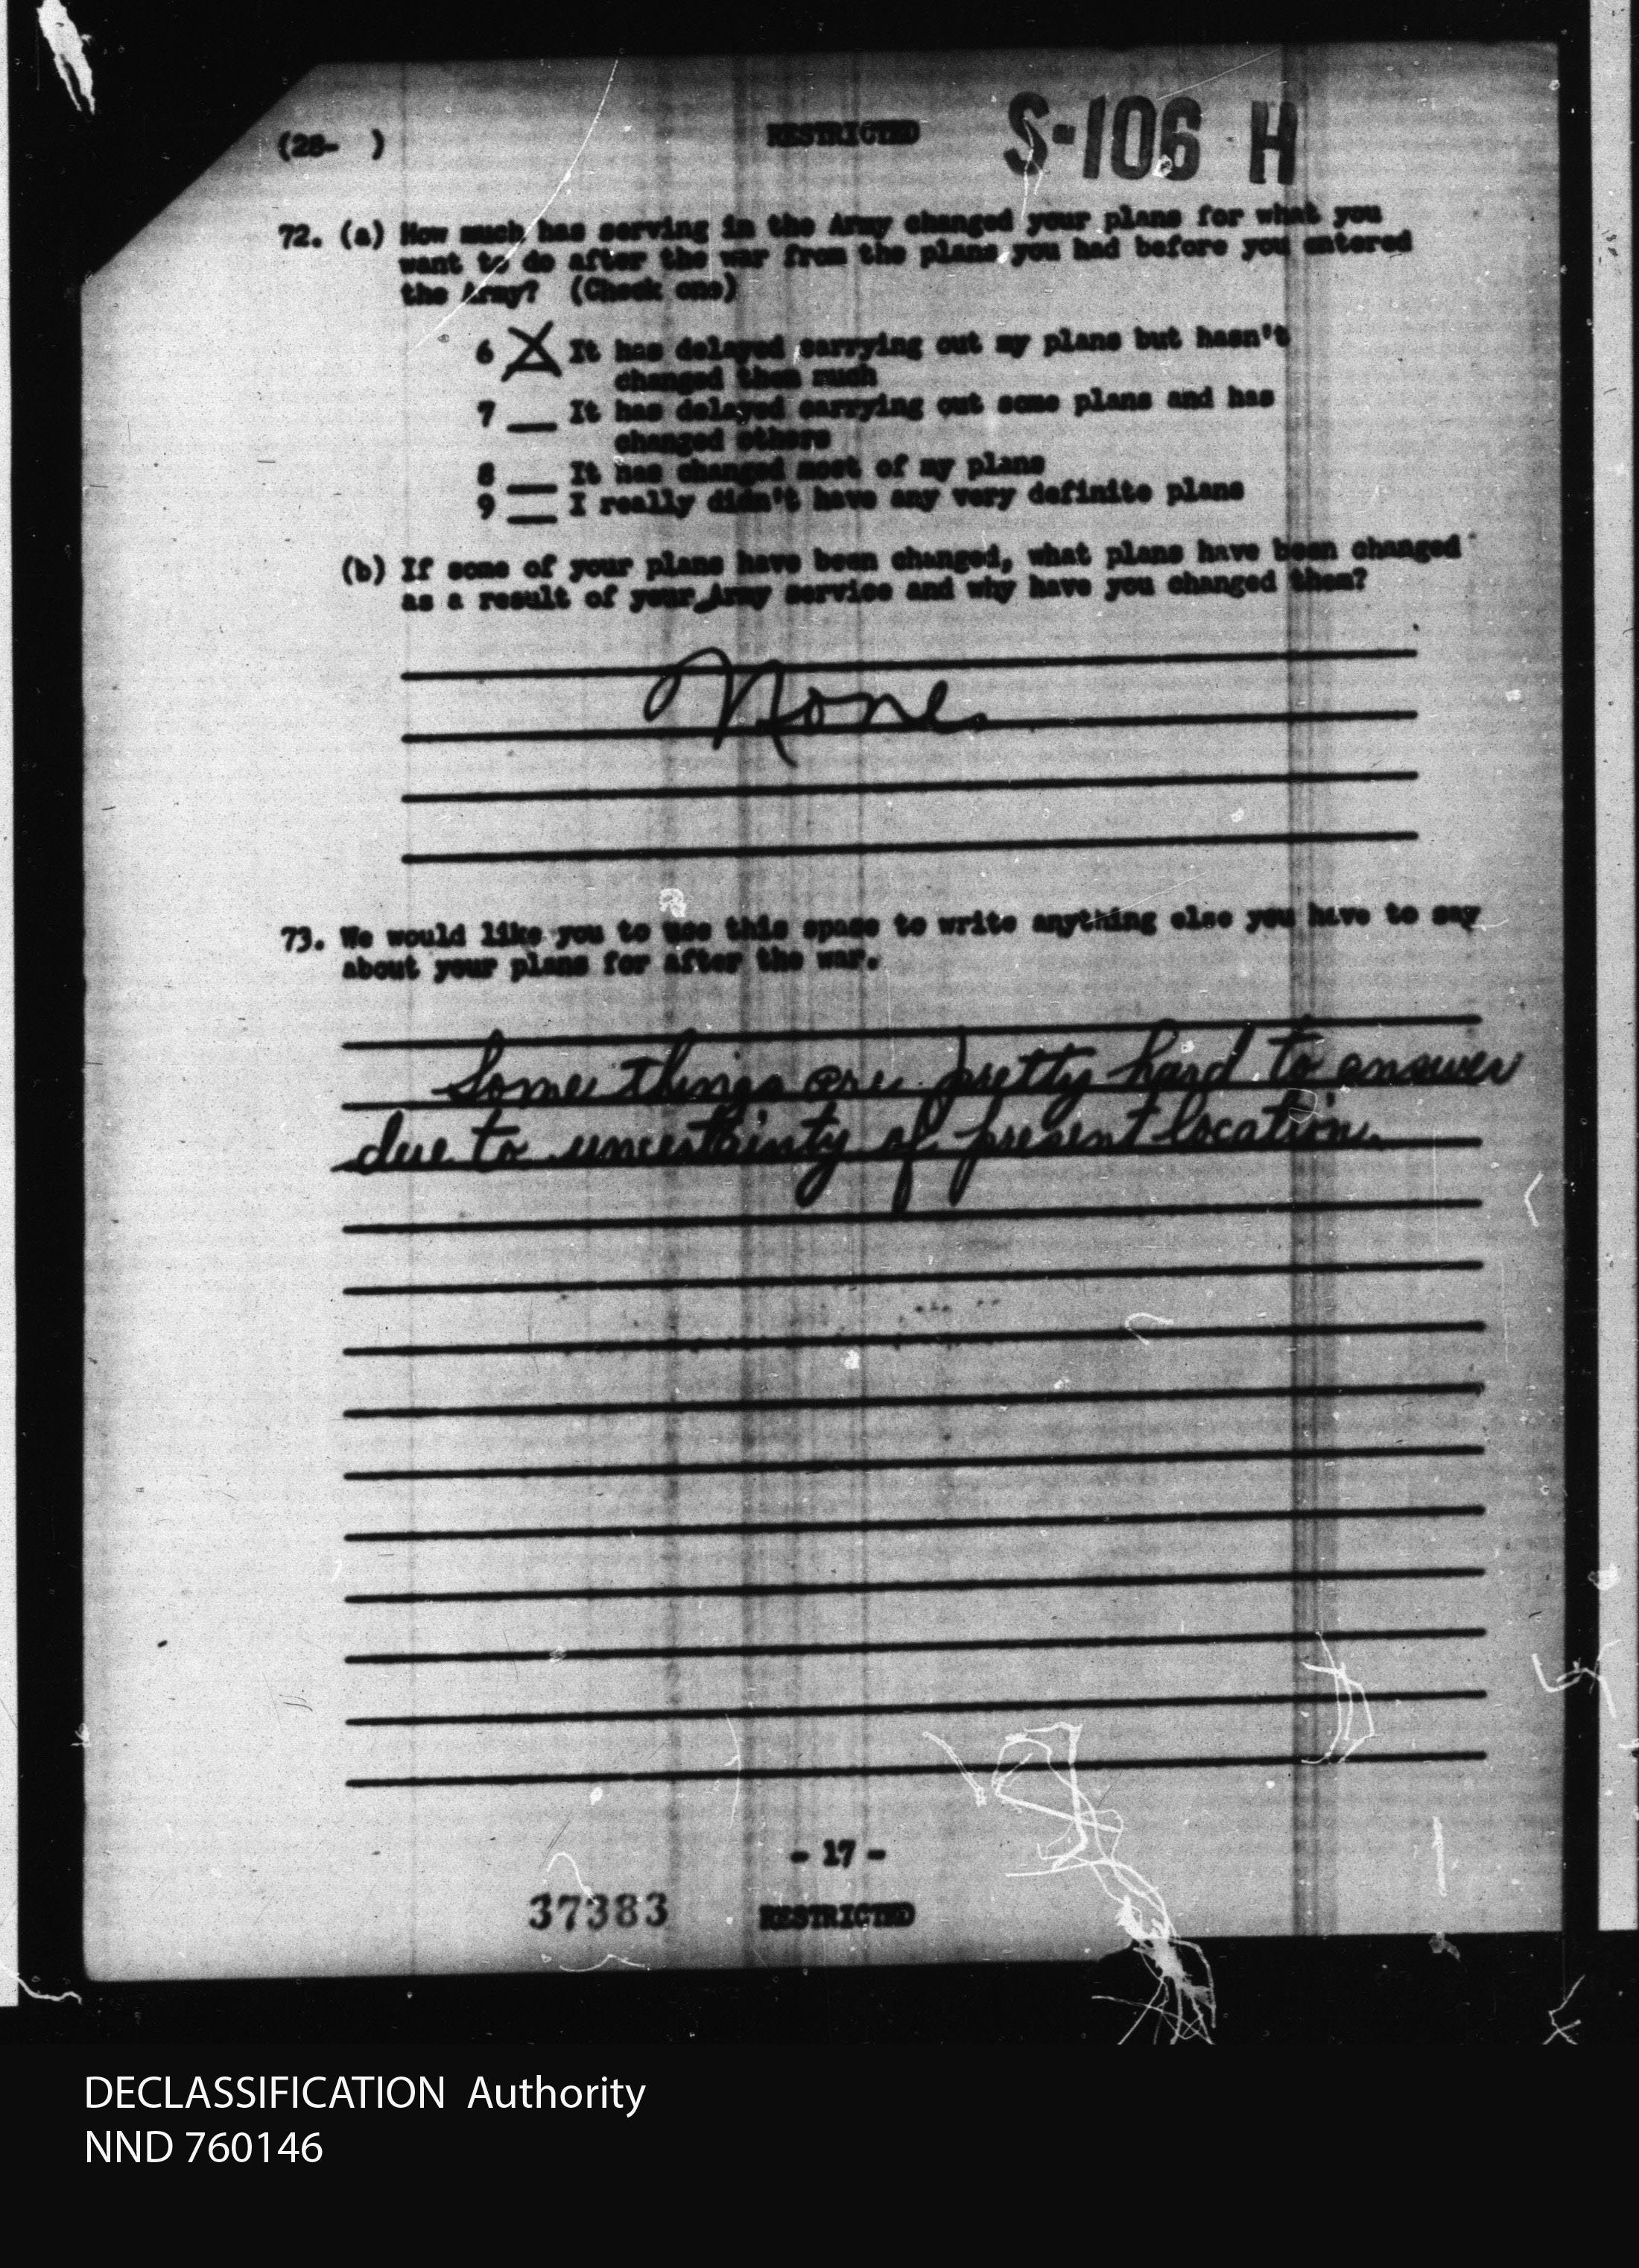 (28- ) RESTRICTED S-106 H
72. (a) How much has serving in the Army changed your plans for what you
want to do after the war from the plans you had before you entered
the Army? (Check one)
6 X It has delayed carrying out my plans but hasn't
changed them much
7 __ It has delayed carrying out some plans and has
changed others
8 __ It has changed most of my plans
9 __ I really didn't have any very definite plans
(b) If some of your plans have been changed, what plans have been changed
as a result of your Army service and why have you changed them?
None
73. We would like you to use this space to write anything else you have to say
about your plans for after the war.
Some things are pretty hard to answer
due to uncerthinty of present location.
- 17 -
37383 RESTRICTED
DECLASSIFICATION Authority
NND 760146